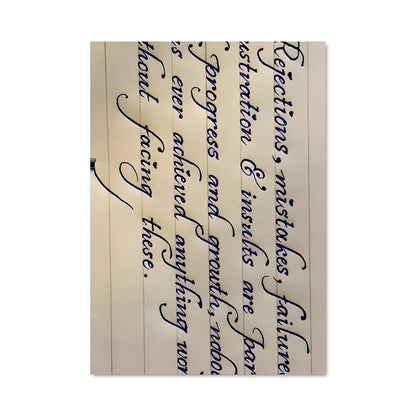 Rejections, mistakes, failure
ustration & insults are par
progress and growth, nobo
s ever achieved anything wor
hout facing these.